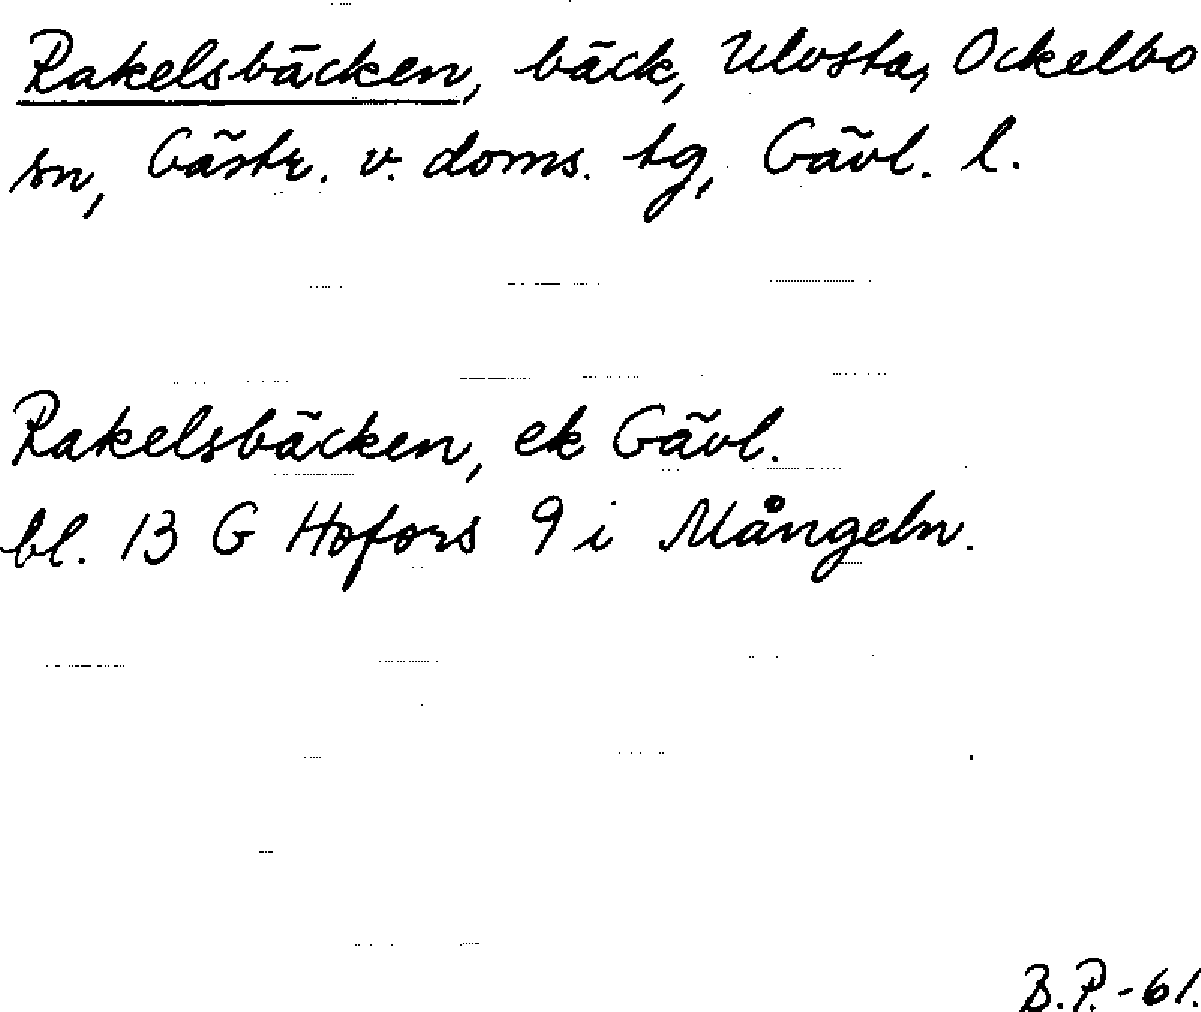 Rakelsbäcken, bäck, Ulvsta, Ockelbo
sn, Gästr. v. doms. tg, Gävl. l.
Rakelsbäcken, ek Gävl.
bl. 13 G Hofors 9 i Mångeln.
B.P.-61.